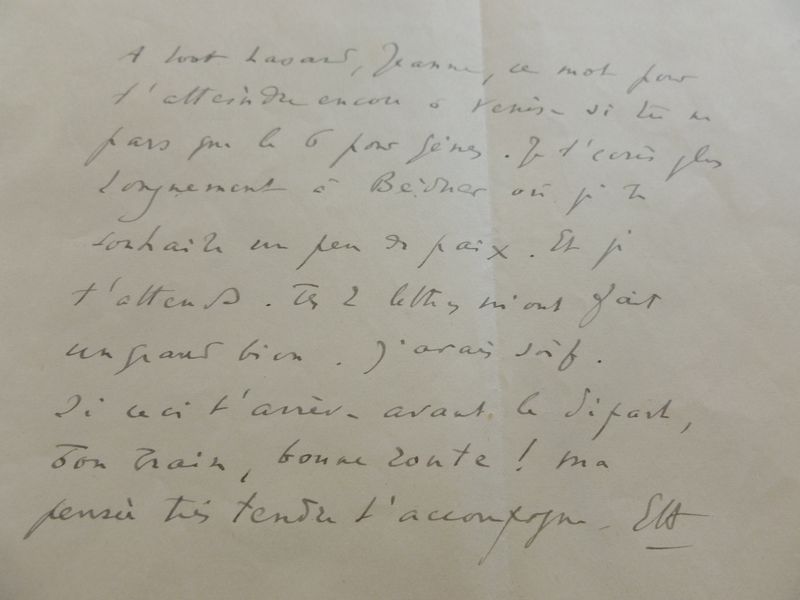 A tout hasard, Jeanne, ce mot pour
t'atteindre encore à Venise si tu ne
pars que le 6 pour Gênes. Je t'écris plus
longuement à où je te
souhaite un peu de paix. Et je
t'attends. Tes 2 lettres m'ont fait
un grand bien. J'avais soif.
Si ceci t'arrive avant le départ,
bon train, bonne route ! ma
pensée très tendre t'accompagne -